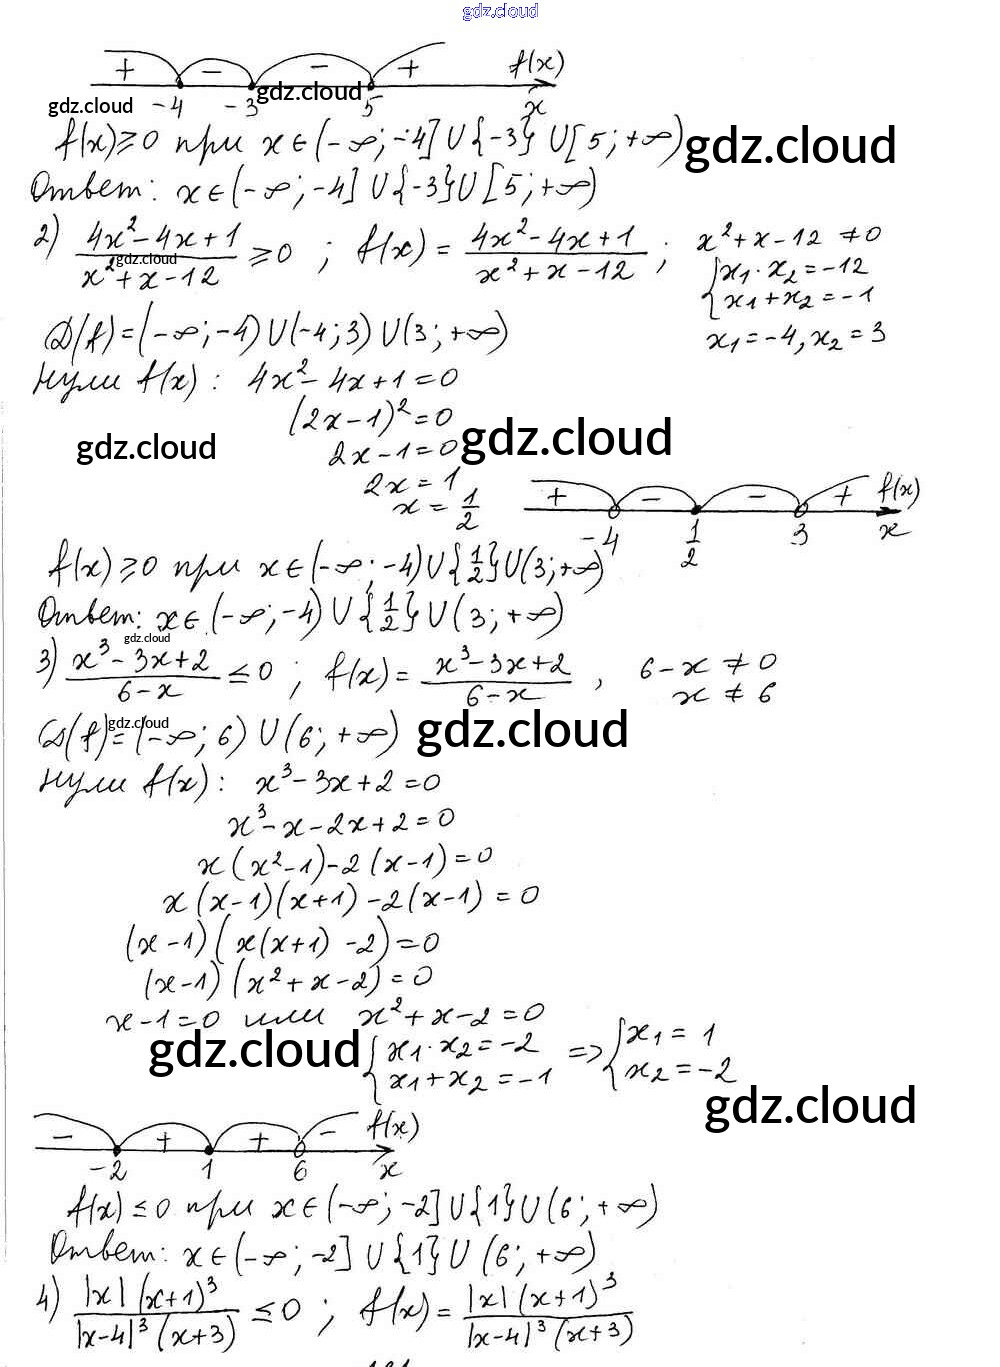 gdz.cloud
+ − − + f(x)
gdz.cloud −4 −3 gdz.cloud 5 x
f(x)≥0 при x∈(−∞;−4]∪{−3}∪[5;+∞) gdz.cloud
Ответ: x∈(−∞;−4]∪{−3}∪[5;+∞)
2) (4x²−4x+1)/(x²+x−12) ≥0 ; f(x)= (4x²−4x+1)/(x²+x−12) ; x²+x−12≠0
gdz.cloud
{x₁·x₂=−12
x₁+x₂=−1
D(f)=(−∞;−4)∪(−4;3)∪(3;+∞) x₁=−4, x₂=3
Нули f(x): 4x²−4x+1=0
(2x−1)²=0
gdz.cloud 2x−1=0 gdz.cloud
2x=1
x=1/2
+ − − + f(x)
−4 1/2 3 x
f(x)≥0 при x∈(−∞;−4)∪{1/2}∪(3;+∞)
Ответ: x∈(−∞;−4)∪{1/2}∪(3;+∞)
gdz.cloud
3) (x³−3x+2)/(6−x) ≤0 ; f(x)= (x³−3x+2)/(6−x) , 6−x≠0
x≠6
D(f)=(−∞;6)∪(6;+∞) gdz.cloud
gdz.cloud
Нули f(x): x³−3x+2=0
x³−x−2x+2=0
x(x²−1)−2(x−1)=0
x(x−1)(x+1)−2(x−1)=0
(x−1)(x(x+1)−2)=0
(x−1)(x²+x−2)=0
x−1=0 или x²+x−2=0
gdz.cloud {x₁·x₂=−2 => {x₁=1
x₁+x₂=−1 x₂=−2
gdz.cloud
− + + − f(x)
−2 1 6 x
f(x)≤0 при x∈(−∞;−2]∪{1}∪(6;+∞)
Ответ: x∈(−∞;−2]∪{1}∪(6;+∞)
4) |x|(x+1)³/(|x−4|³(x+3)) ≤0 ; f(x)= |x|(x+1)³/(|x−4|³(x+3))